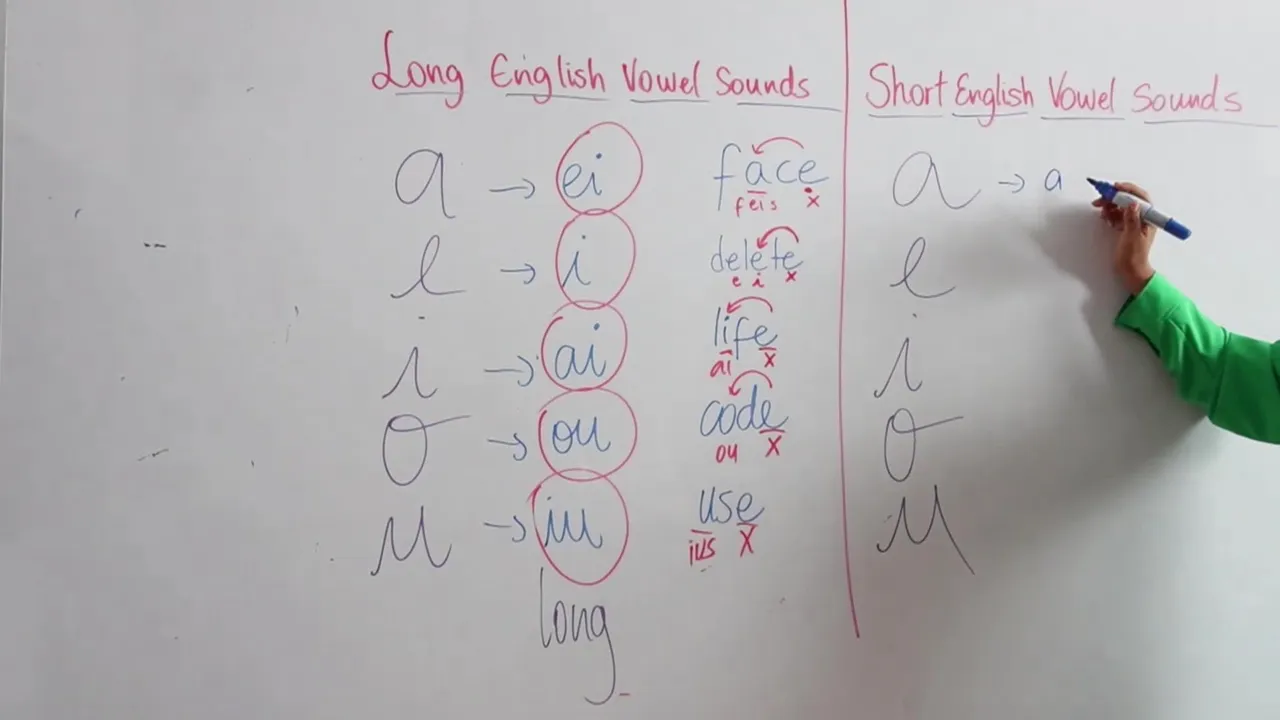 Long English Vowel Sounds
a → ei face
feis x
e → i delete
e i x
i → ai life
ai x
o → ou code
ou x
u → iu use
ius x
long
Short English Vowel Sounds
a → a
e
i
o
u